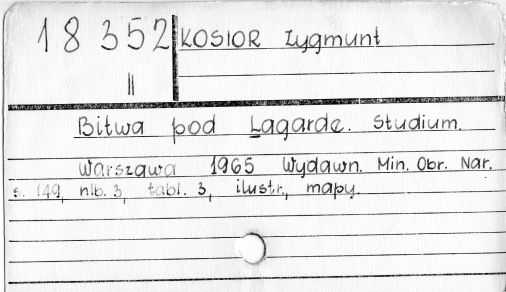 18 352 KOSIOR Zygmunt
II
Bitwa pod Lagarde. Studium.
Warszawa 1965 Wydawn. Min. Obr. Nar.
s. 149, nlb. 3, tabl. 3, ilustr., mapy.